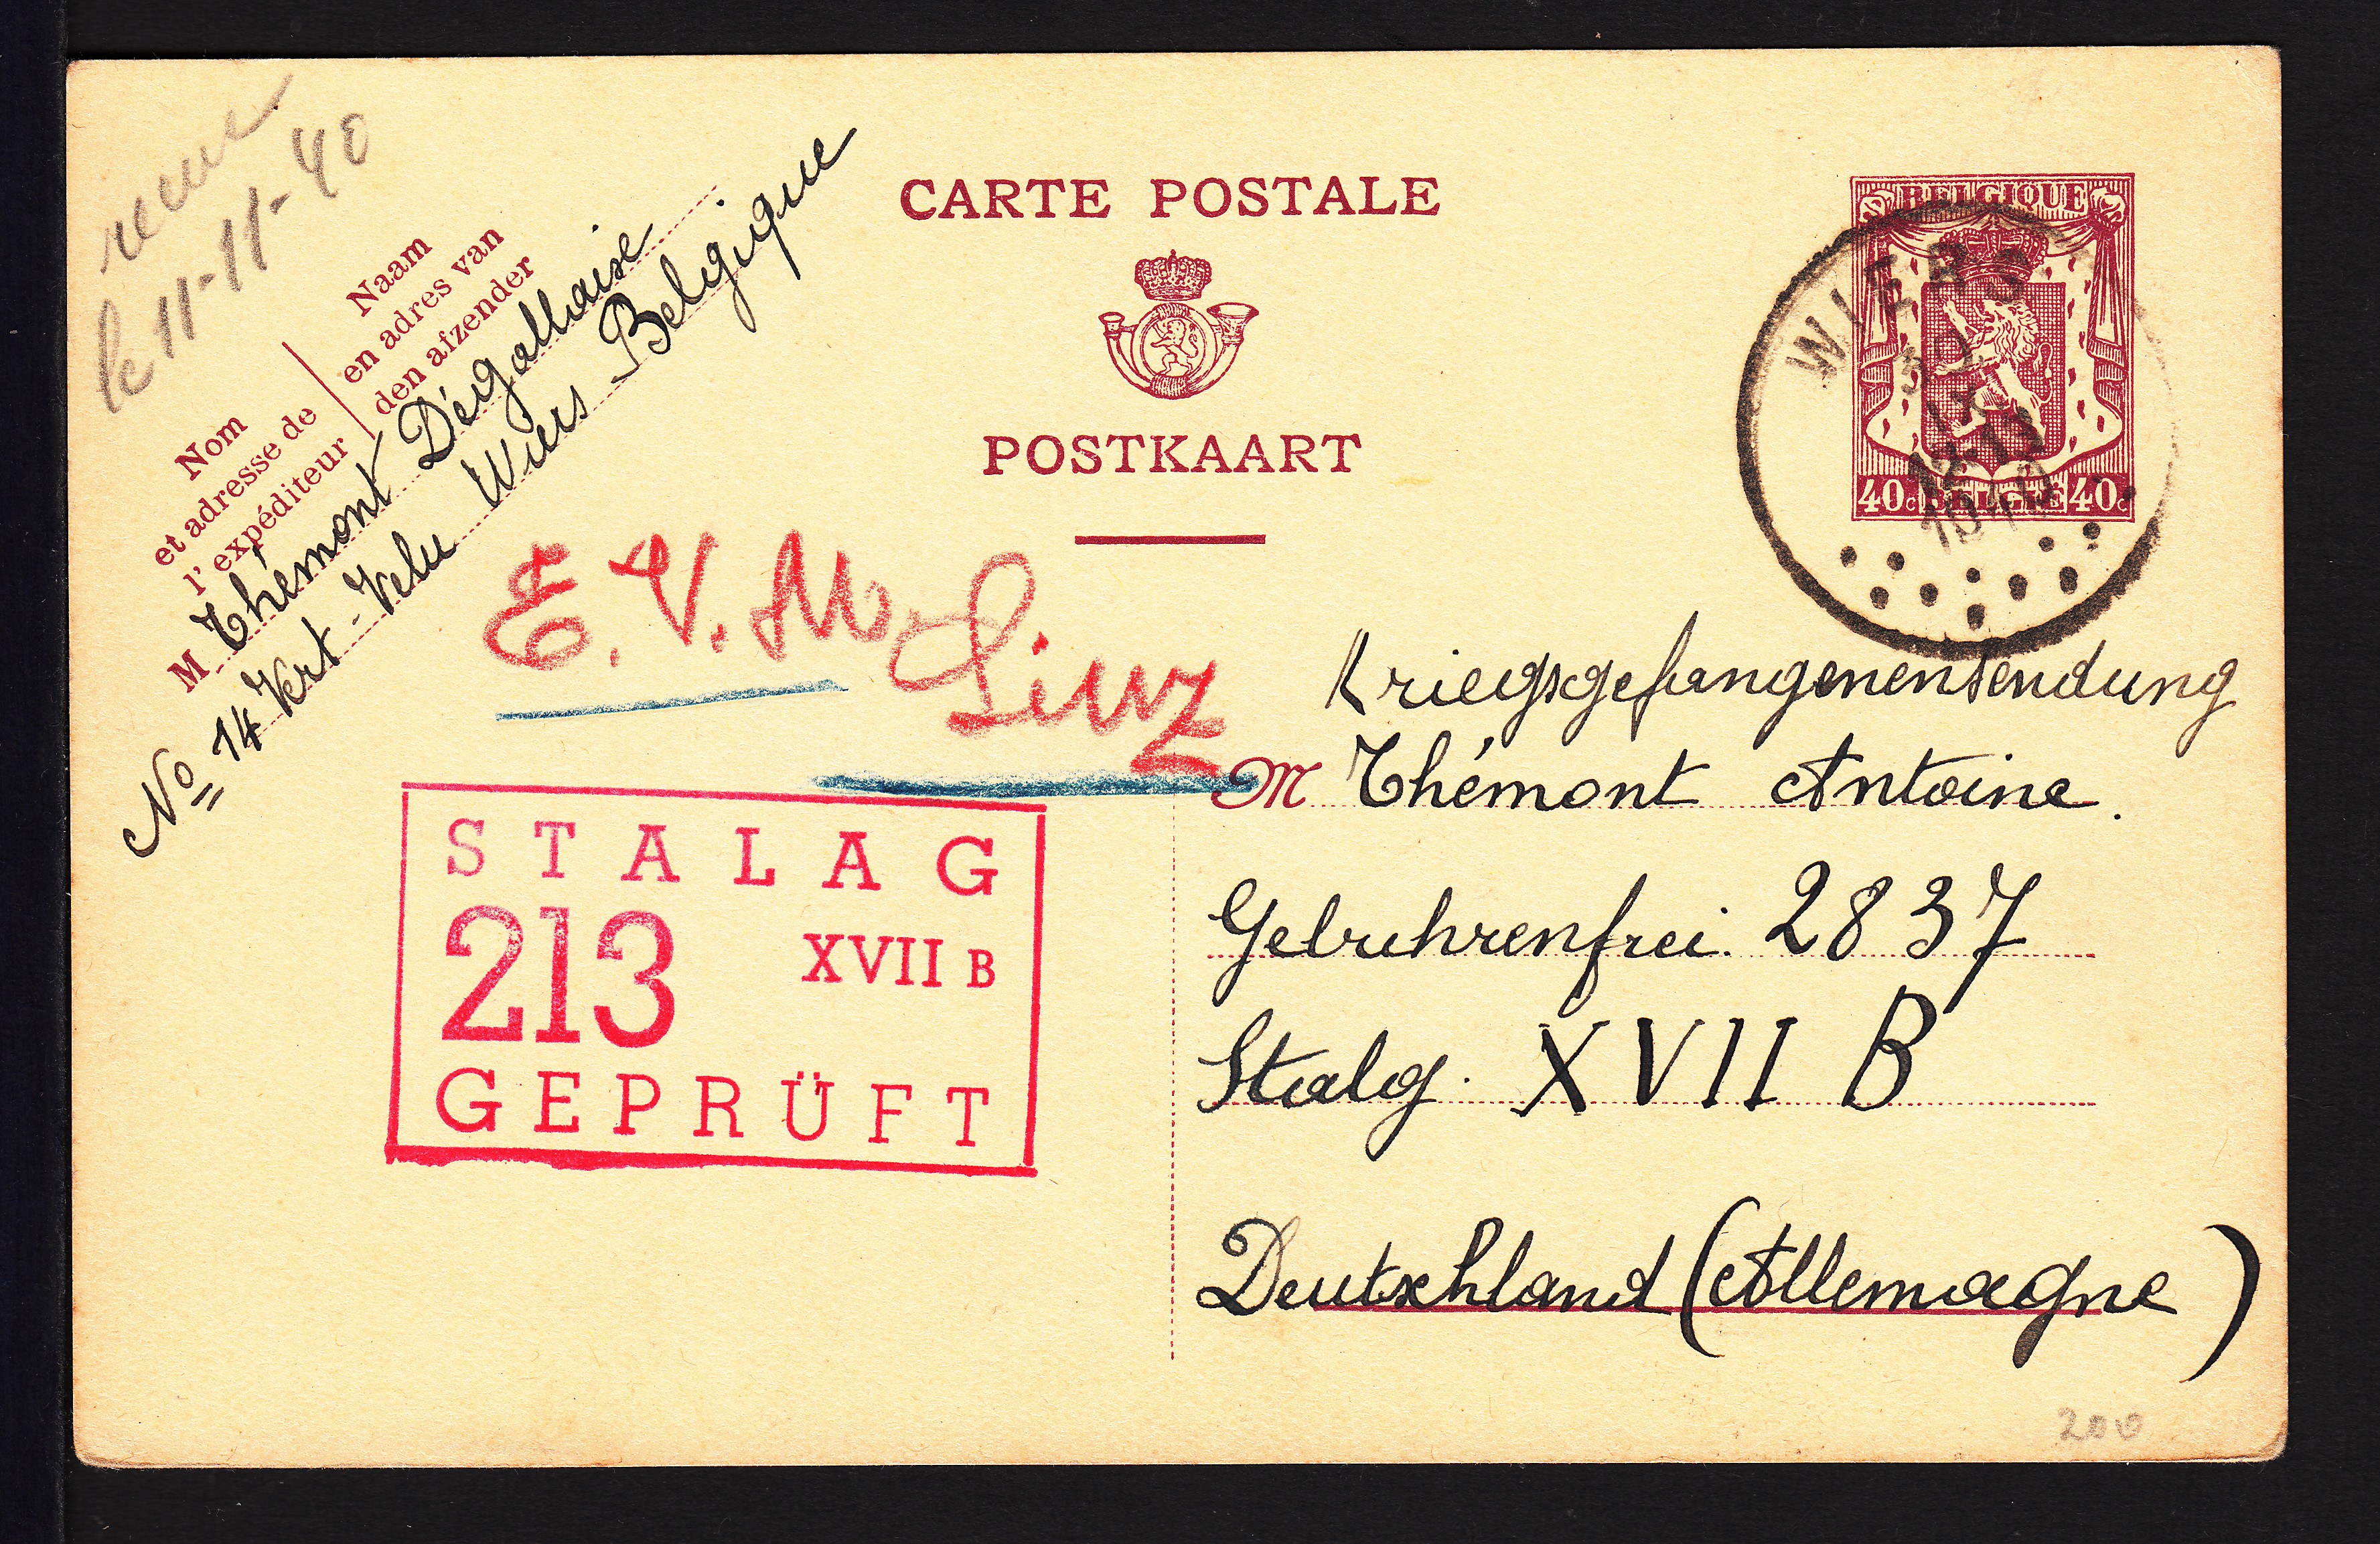 recue
le 11-11-40
Nom
et adresse de
l'expéditeur
Naam
en adres van
den afzender
M Thémont Dégallaise
No 14 Vert-Velu Wiers Belgique
CARTE POSTALE
POSTKAART
BELGIQUE
40c BELGIE 40c
WIERS
30
IX
12-13
1940
E. V. M. Linz
STALAG
213 XVII B
GEPRÜFT
Kriegsgefangenensendung
M Thémont Antoine.
Gebuhrenfrei. 2837
Stalg. XVII B
Deutschland (Allemagne)
200